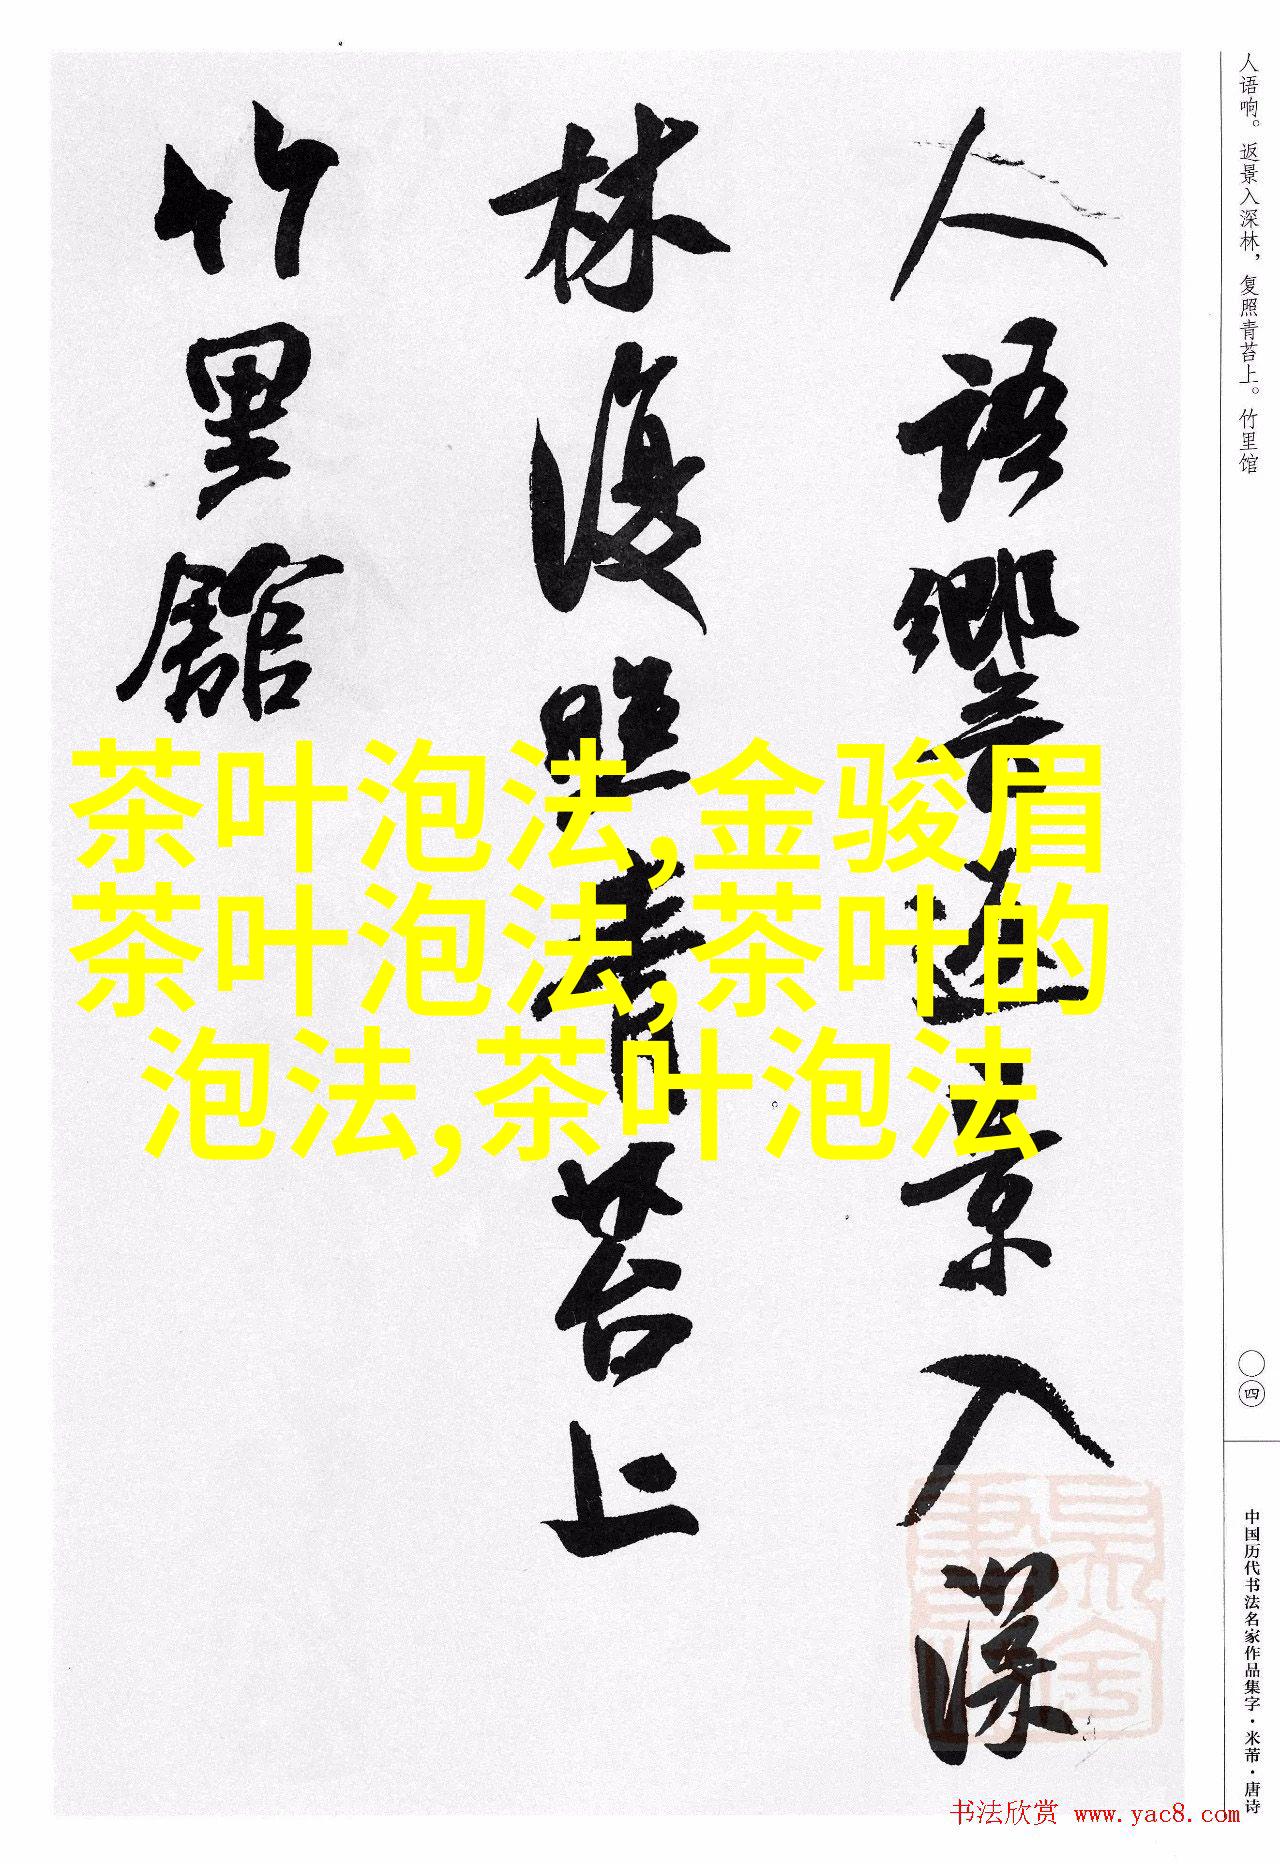 人语响。返景入深林，复照青苔上。竹里馆
人語響返景入深
林復照青苔上
竹里館
茶叶泡法,金骏眉
茶叶泡法,茶叶的
泡法,茶叶泡法
〇四
中国历代书法名家作品集字·米芾·唐诗
书法欣赏 www.yac8.com